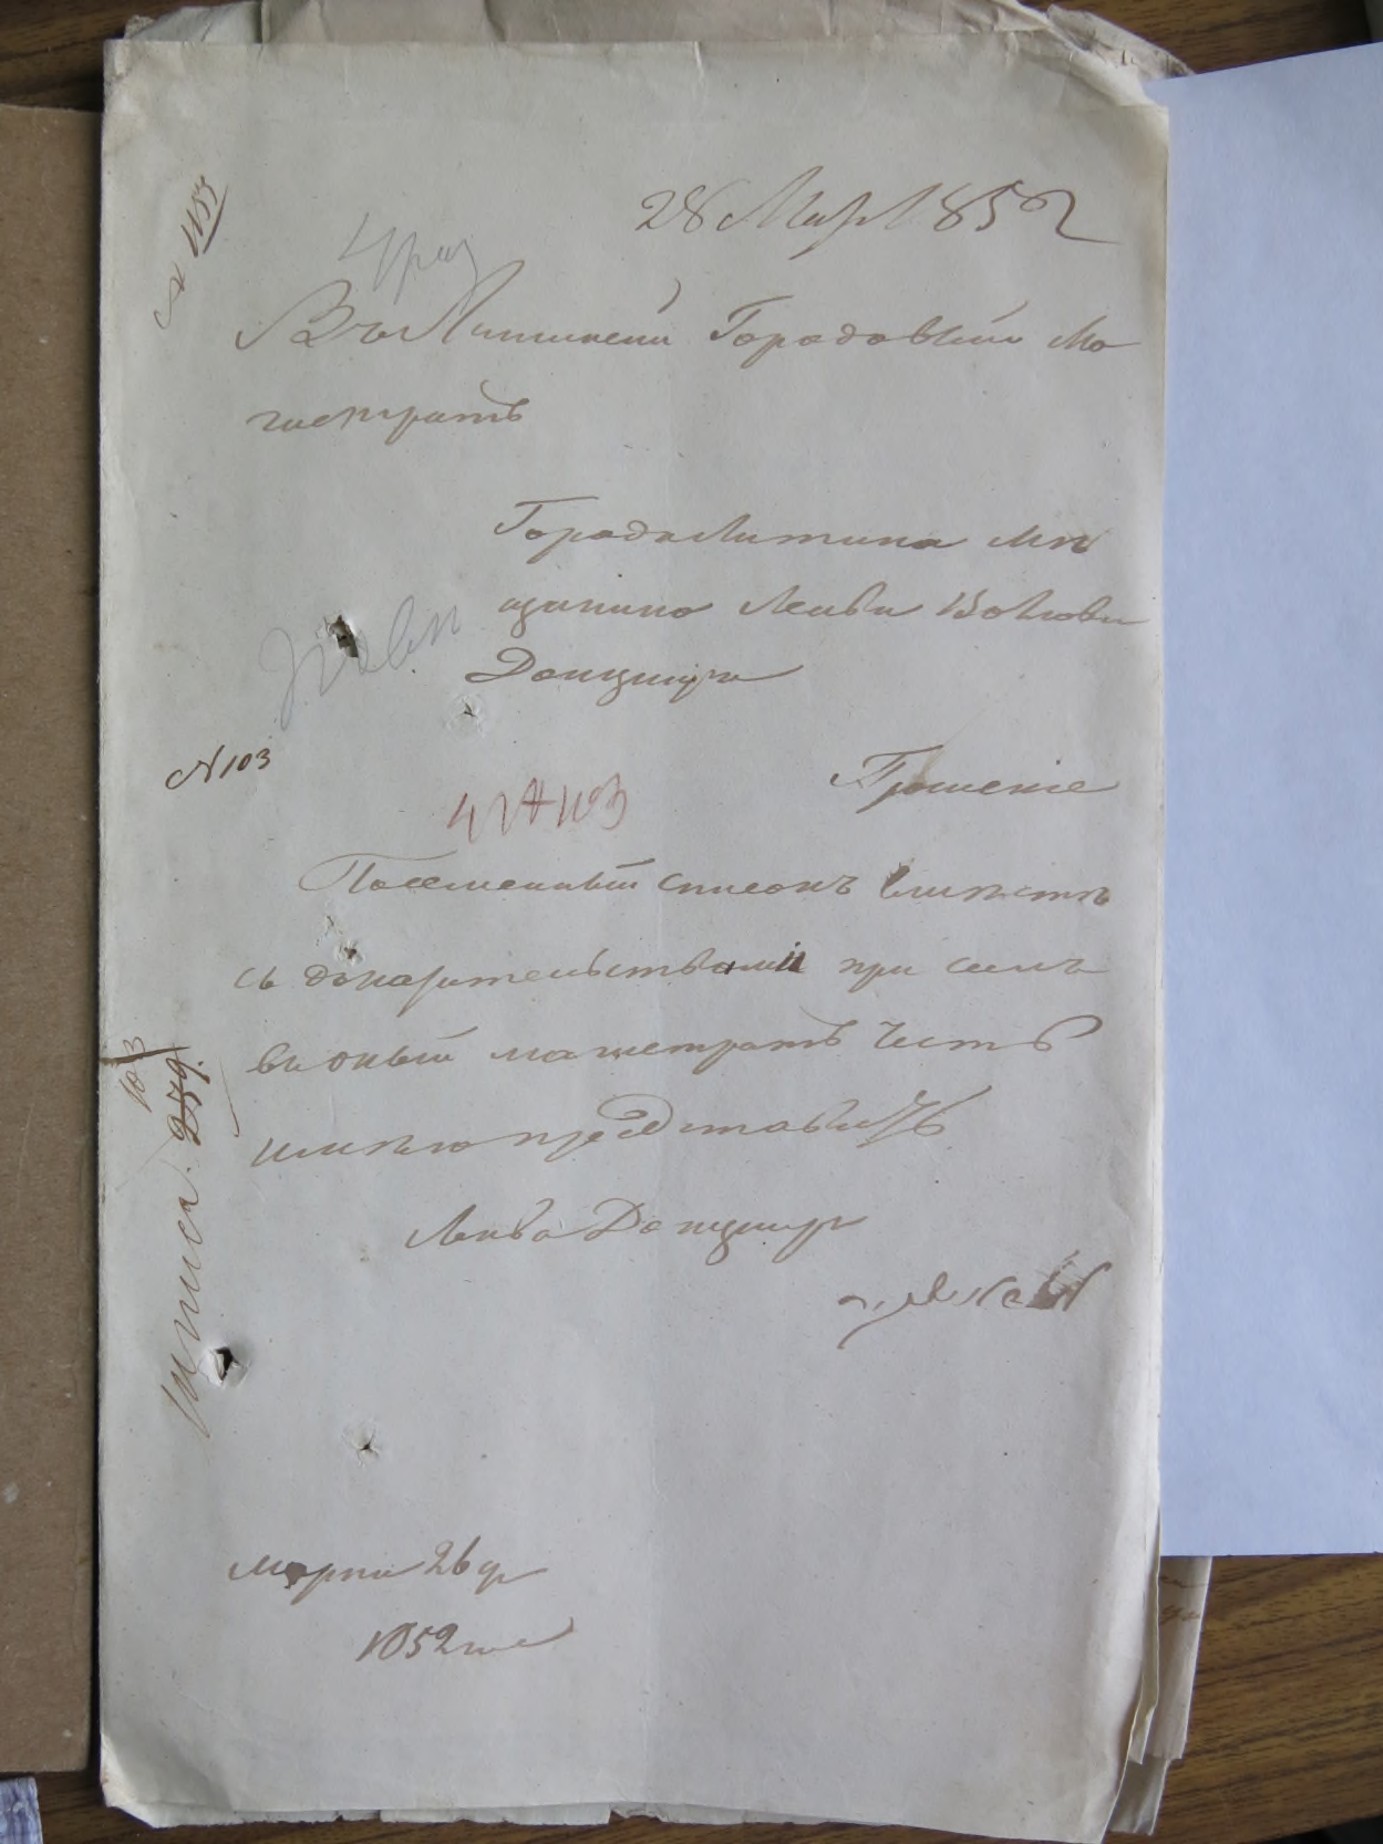 № 1153
28 Мар 1852
4 раз
Въ Литинскій Городовый Ма
гистратъ
Города Литина Мѣ
щанина Лейбы Волкова
Данцигера
№ 103
Прошеніе
Посемейный списокъ вмѣстѣ
съ доказательствами при семъ
въ оный магистратъ честь
имѣю представить
Лейба Данцигер
103
279.
Марта 26 д
1852 го